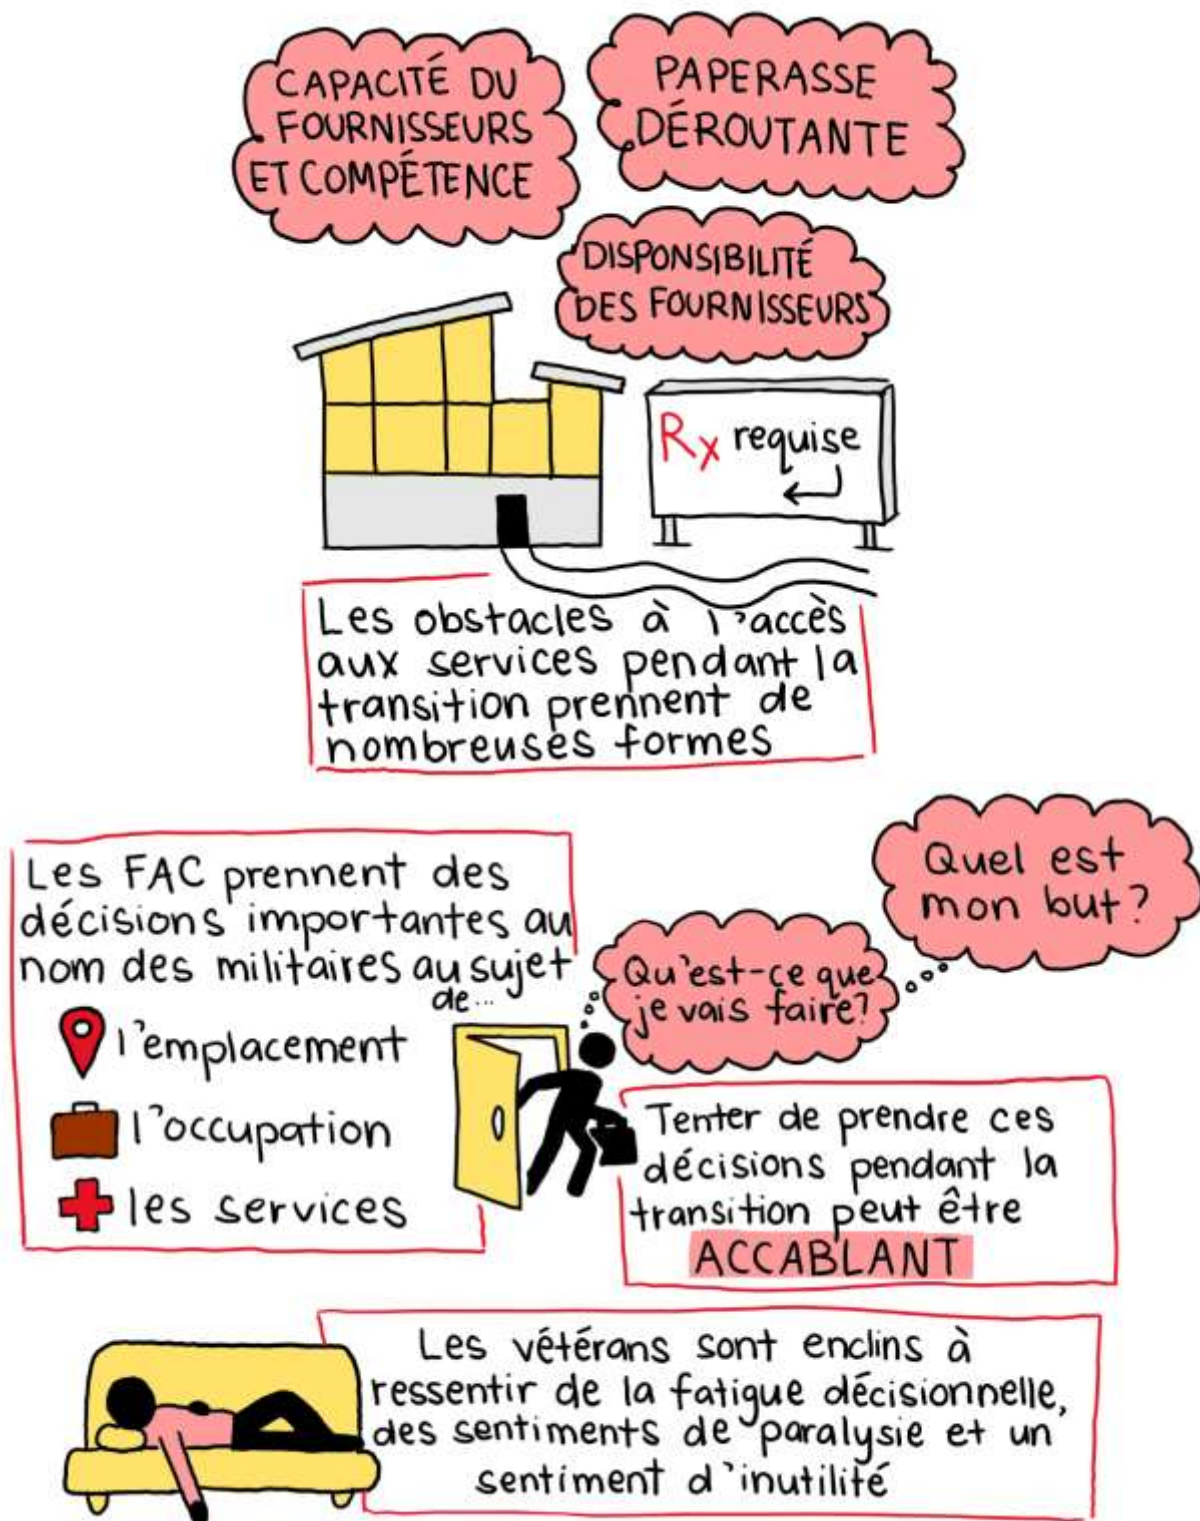 CAPACITÉ DU
FOURNISSEURS
ET COMPÉTENCE
PAPERASSE
DÉROUTANTE
DISPONSIBILITÉ
DES FOURNISSEURS
Rx requise
Les obstacles à l'accès
aux services pendant la
transition prennent de
nombreuses formes
Les FAC prennent des
décisions importantes au
nom des militaires au sujet
de...
l'emplacement
l'occupation
les services
Quel est
mon but?
Qu'est-ce que
je vais faire?
Tenter de prendre ces
décisions pendant la
transition peut être
ACCABLANT
Les vétérans sont enclins à
ressentir de la fatigue décisionnelle,
des sentiments de paralysie et un
sentiment d'inutilité